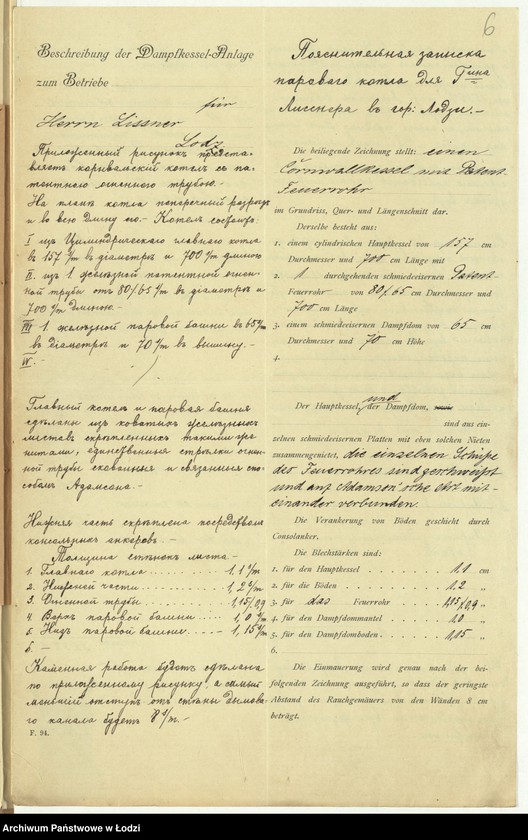 6
Beschreibung der Dampfkessel-Anlage
zum Betriebe
für
Herrn Lissner
Lodz
Приложенный рисунокъ предста-
вляетъ корнваллскій котелъ съ па-
тентного огненного трубою.-
На планѣ котла поперечный разрѣзъ
и во всю длину его.- Котелъ состоитъ:
I изъ Цилиндрическаго главнаго котла
въ 157 с/m въ діаметрѣ и 700 с/m длиною
II. изъ 1 желѣзной патентной огнен-
ной трубы отъ 80/65 с/m въ діаметрѣ и
700 с/m длиною.-
III 1 желѣзной паровой башни въ 65 с/m
въ діаметрѣ и 70 с/m въ вышину.-
IV. -
Главный котелъ и паровая башня
сдѣланы изъ кованныхъ желѣзныхъ
листовъ скрѣпленныхъ такими же
нитами, единственныя стрѣлки огнен-
ной трубы скованныя и связанныя спо-
собомъ Адамсона.-
Нижняя часть скрѣплена посредствомъ
консольныхъ анкеровъ.-
Толщина стѣнокъ листа.-
1. Главнаго котла 1,1 с/m
2. Нижней части 1,2 с/m
3. Огненной трубы 1,15/0,9
4. Верхъ паровой башни 1,0 с/m
5. Низъ паровой башни 1,15 с/m
6. -
Каменная работа будетъ сдѣлана
по приложенному рисунку, а самый
меньшій отступъ отъ стѣны дымова-
го канала будетъ 8 с/m.-
F. 94.
Пояснительная записка
пароваго котла для Гина
Лисснера въ гор: Лодзи.-
Die beiliegende Zeichnung stellt: einen
Cornwallkessel mit Patent
Feuerrohr
im Grundriss, Quer- und Längenschnitt dar.
Derselbe besteht aus:
1. einem cylindrischen Hauptkessel von 157 cm
Durchmesser und 700 cm Länge mit
2. 1 durchgehenden schmiedeeisernen Patent
Feuerrohr von 80/65 cm Durchmesser und
700 cm Länge
3. einem schmiedeeisernen Dampfdom von 65 cm
Durchmesser und 70 cm Höhe
4.
Der Hauptkessel, und der Dampfdom,
sind aus ein-
zelnen schmiedeeisernen Platten mit eben solchen Nieten
zusammengenietet, die einzelnen Schüsse
des Feuerrohres sind geschweisst
und auf Adamson'sche Art mit-
einander verbunden.
Die Verankerung von Böden geschieht durch
Consolanker.
Die Blechstärken sind:
1. für den Hauptkessel 1,1 cm
2. für die Böden 1,2 "
3. für das Feuerrohr 1,15/0,9 "
4. für den Dampfdommantel 1,0 "
5. für den Dampfdomboden 1,15 "
6.
Die Einmauerung wird genau nach der bei-
folgenden Zeichnung ausgeführt, so dass der geringste
Abstand des Rauchgemäuers von den Wänden 8 cm
beträgt.
Archiwum Państwowe w Łodzi